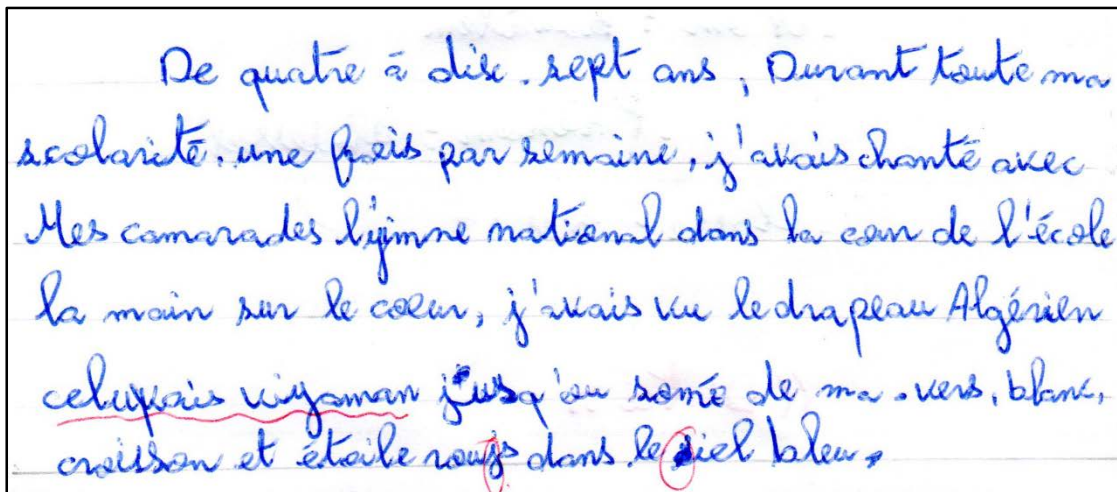 De quatre à dise. sept ans, Durant toute ma
scolarité. une fois par semaine, j'avais chanté avec
Mes camarades l'yimne national dans la cour de l'école
la main sur le coeur, j'avais vu le drapeau Algérien
celuvais viyaman jusqu'au somé de ma. vers, blanc,
croisson et étoile roujs dans le siel bleu.